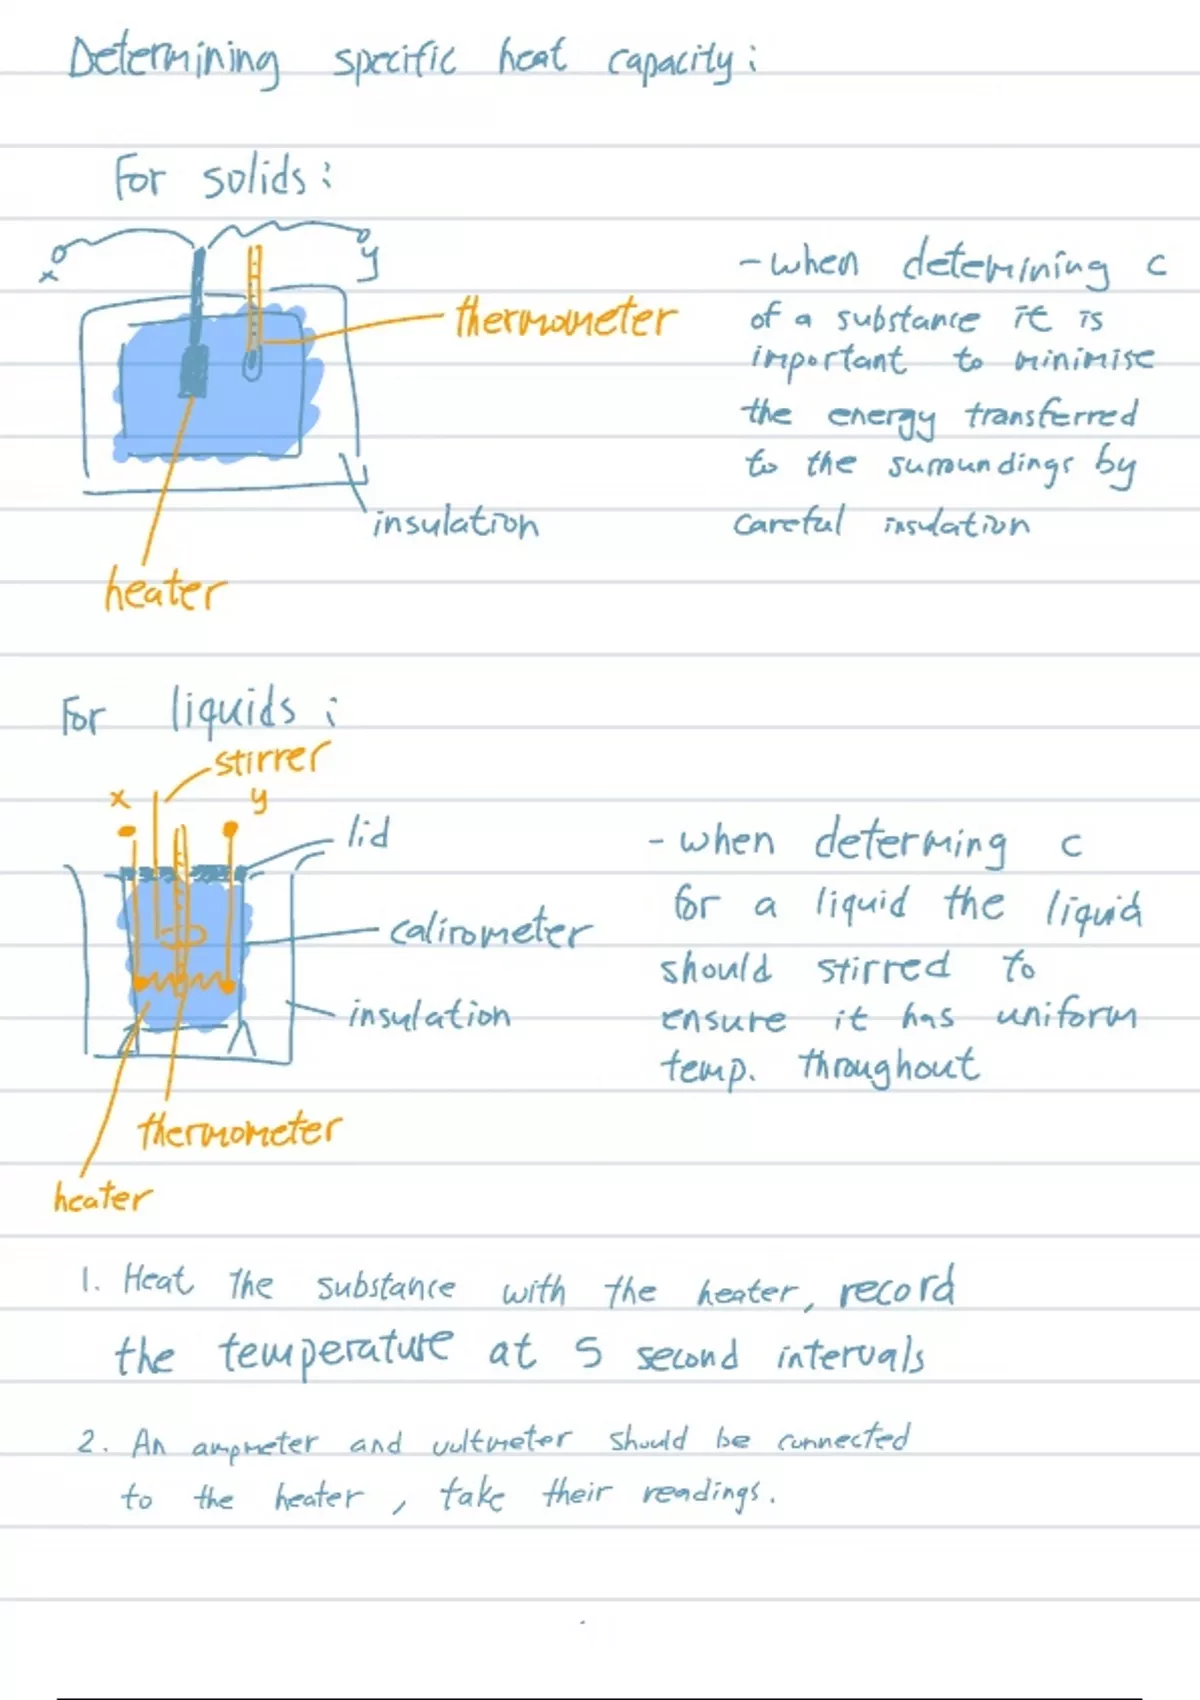 Determining specific heat capacity:
For solids:
x
y
thermometer
insulation
heater
- when determining c
of a substance it is
important to minimise
the energy transferred
to the surroundings by
careful insulation
For liquids:
stirrer
x
y
lid
calirometer
insulation
thermometer
heater
- when determing c
for a liquid the liquid
should stirred to
ensure it has uniform
temp. throughout
1. Heat the substance with the heater, record
the temperature at 5 second intervals
2. An ampmeter and voltmeter should be connected
to the heater, take their readings.